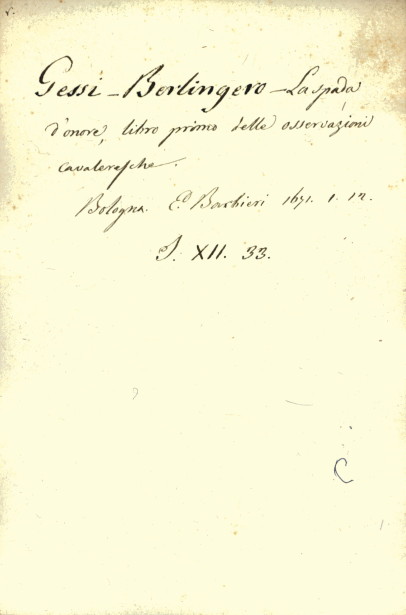 Gessi - Berlingero - La spada
d'onore, libro primo delle osservazioni
cavaleresche.
Bologna. E. Barbieri 1671. 1. 12.
J. XII. 33.
C